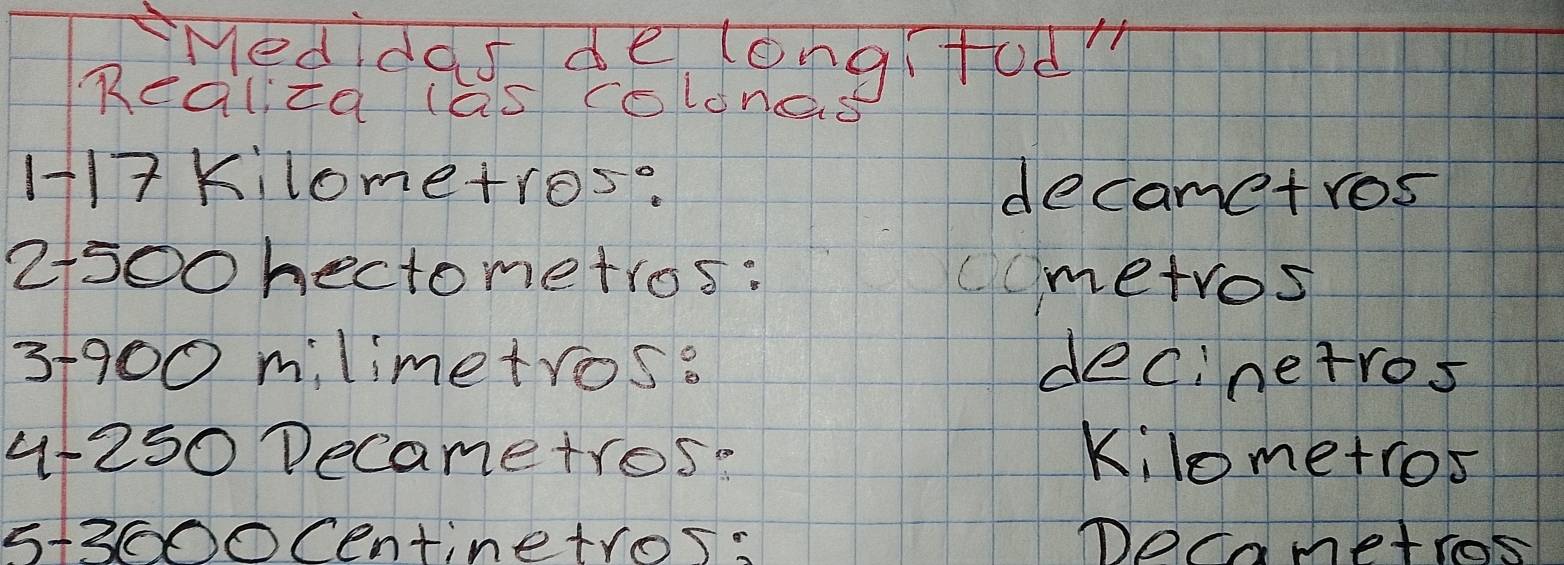 "Medidas de longitud"
Realiza las colonas
1-17 Kilometros: decametros
2-500 hectometros: metros
3-900 milimetros: decinetros
4-250 Decametros: Kilometros
5-3000 Centinetros: Decametros